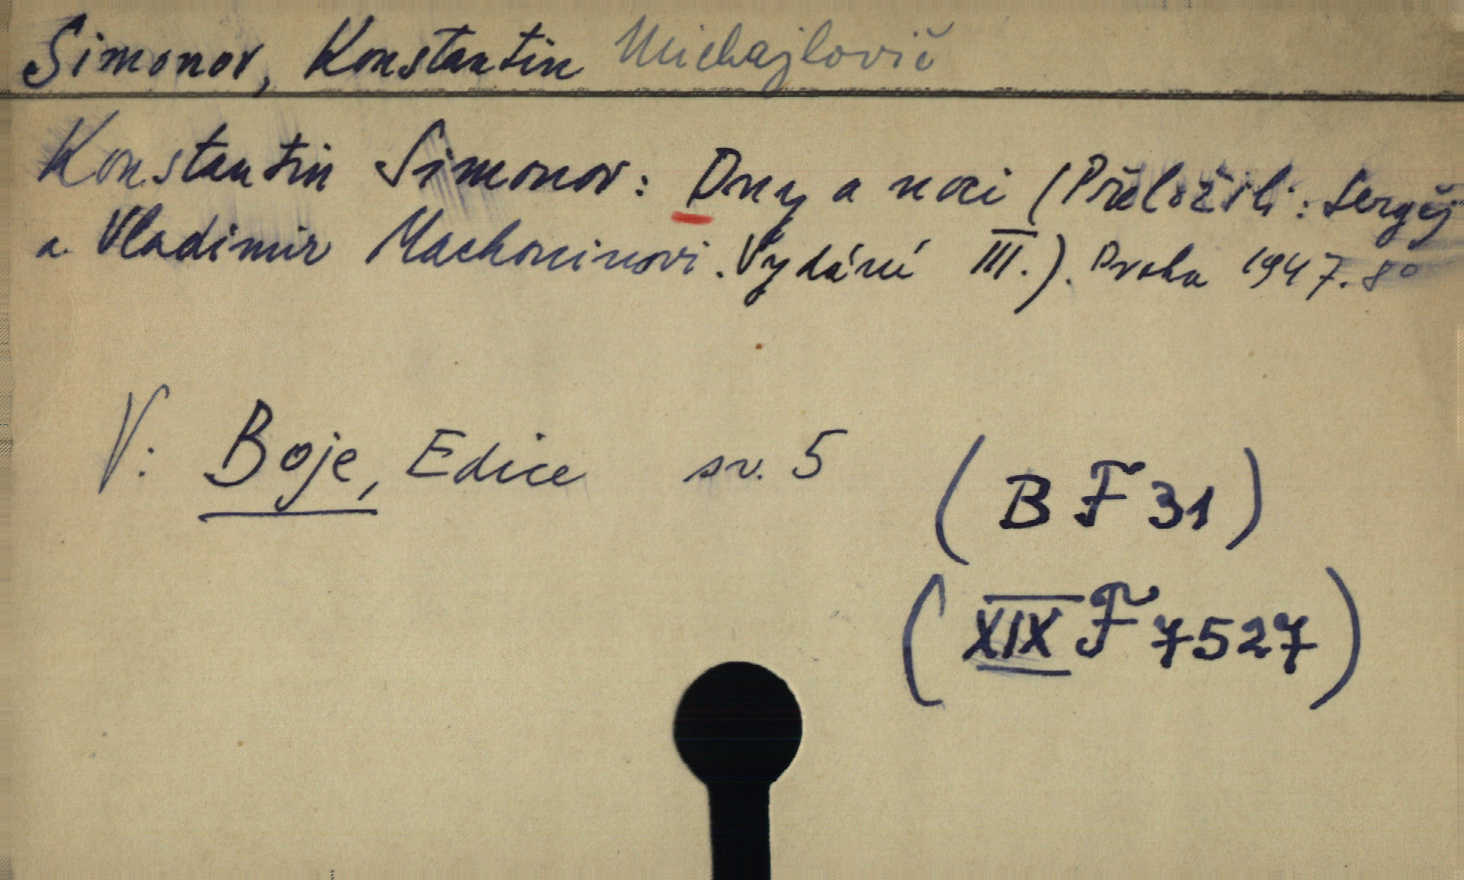 Simonov, Konstantin Michajlovič
Konstantin Simonov: Dny a noci (Přeložili: Sergěj
a Vladimir Machoninovi. Vydání III.). Praha 1947. 8°
V: Boje, Edice sv. 5
(B F 31)
(XIX F 7527)